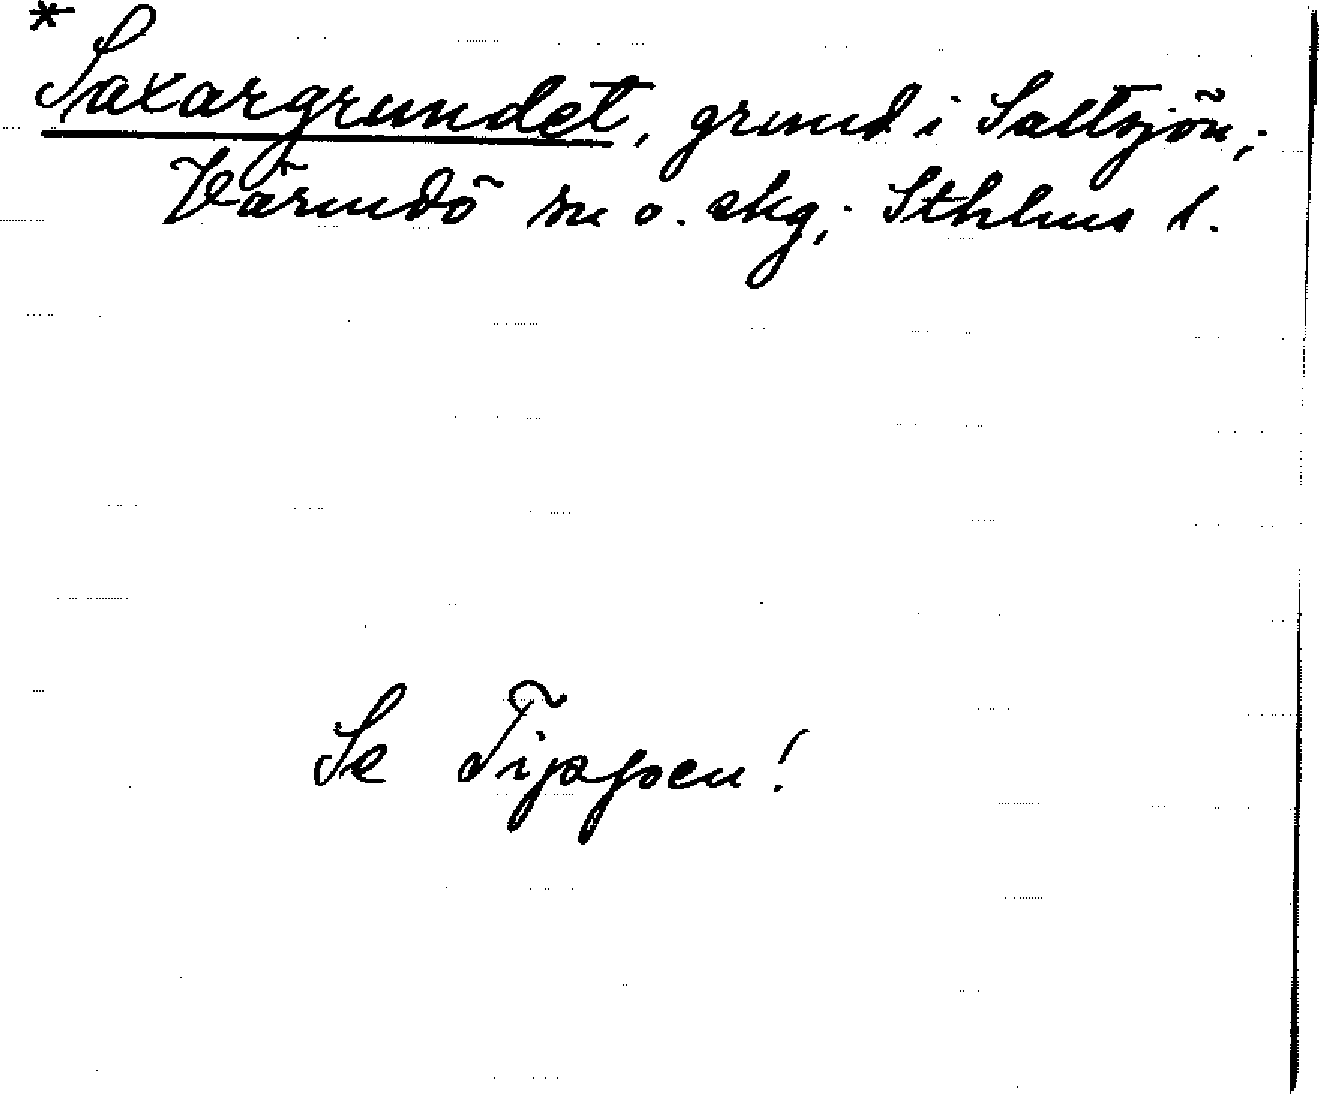 * Saxargrundet, grund i Saltsjön;
Värmdö sn o. skg; Sthlms l.
Se Tippen!